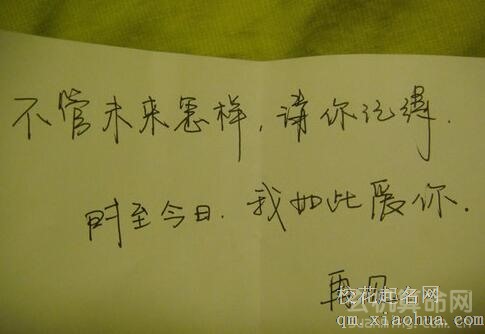 不管未来怎样，请你记得．
时至今日．我如此爱你．
再见
校花起名网
qm.xiaohua.com